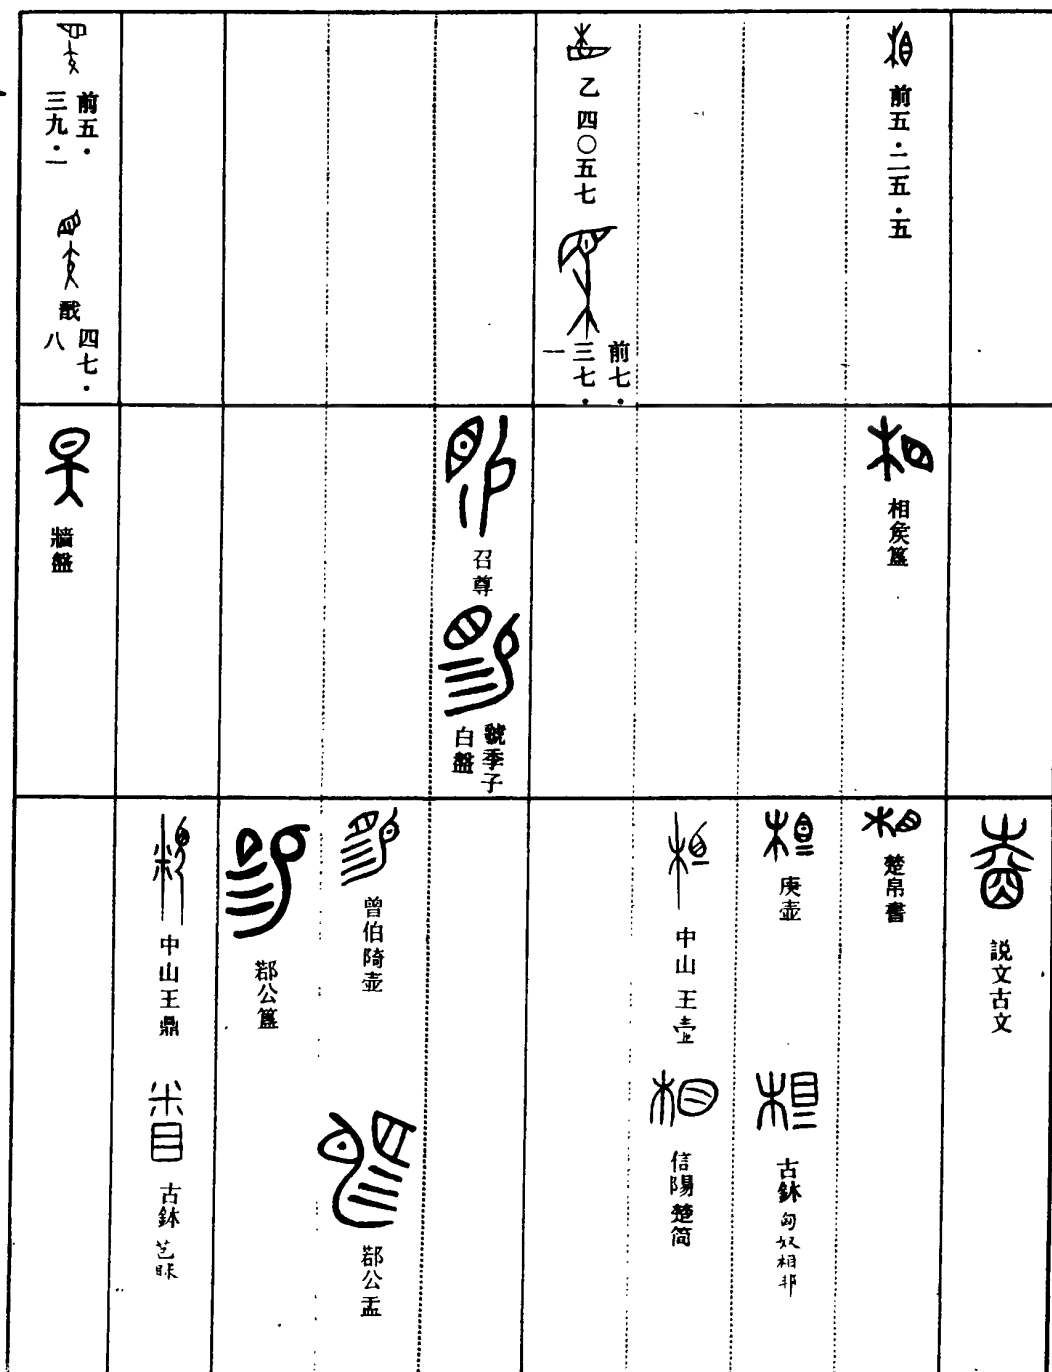 前五·二五·五
乙四〇五七
前七·
三七·
一
前五·
三九·一
四七·
八
相矦簋
召尊
虢季子
白盤
牆盤
説文古文
楚帛書
庚壺
古鉥 匈奴相邦
中山王壺
信陽楚简
曾伯陭壺
鄀公盂
鄀公簋
中山王鼎
古鉥